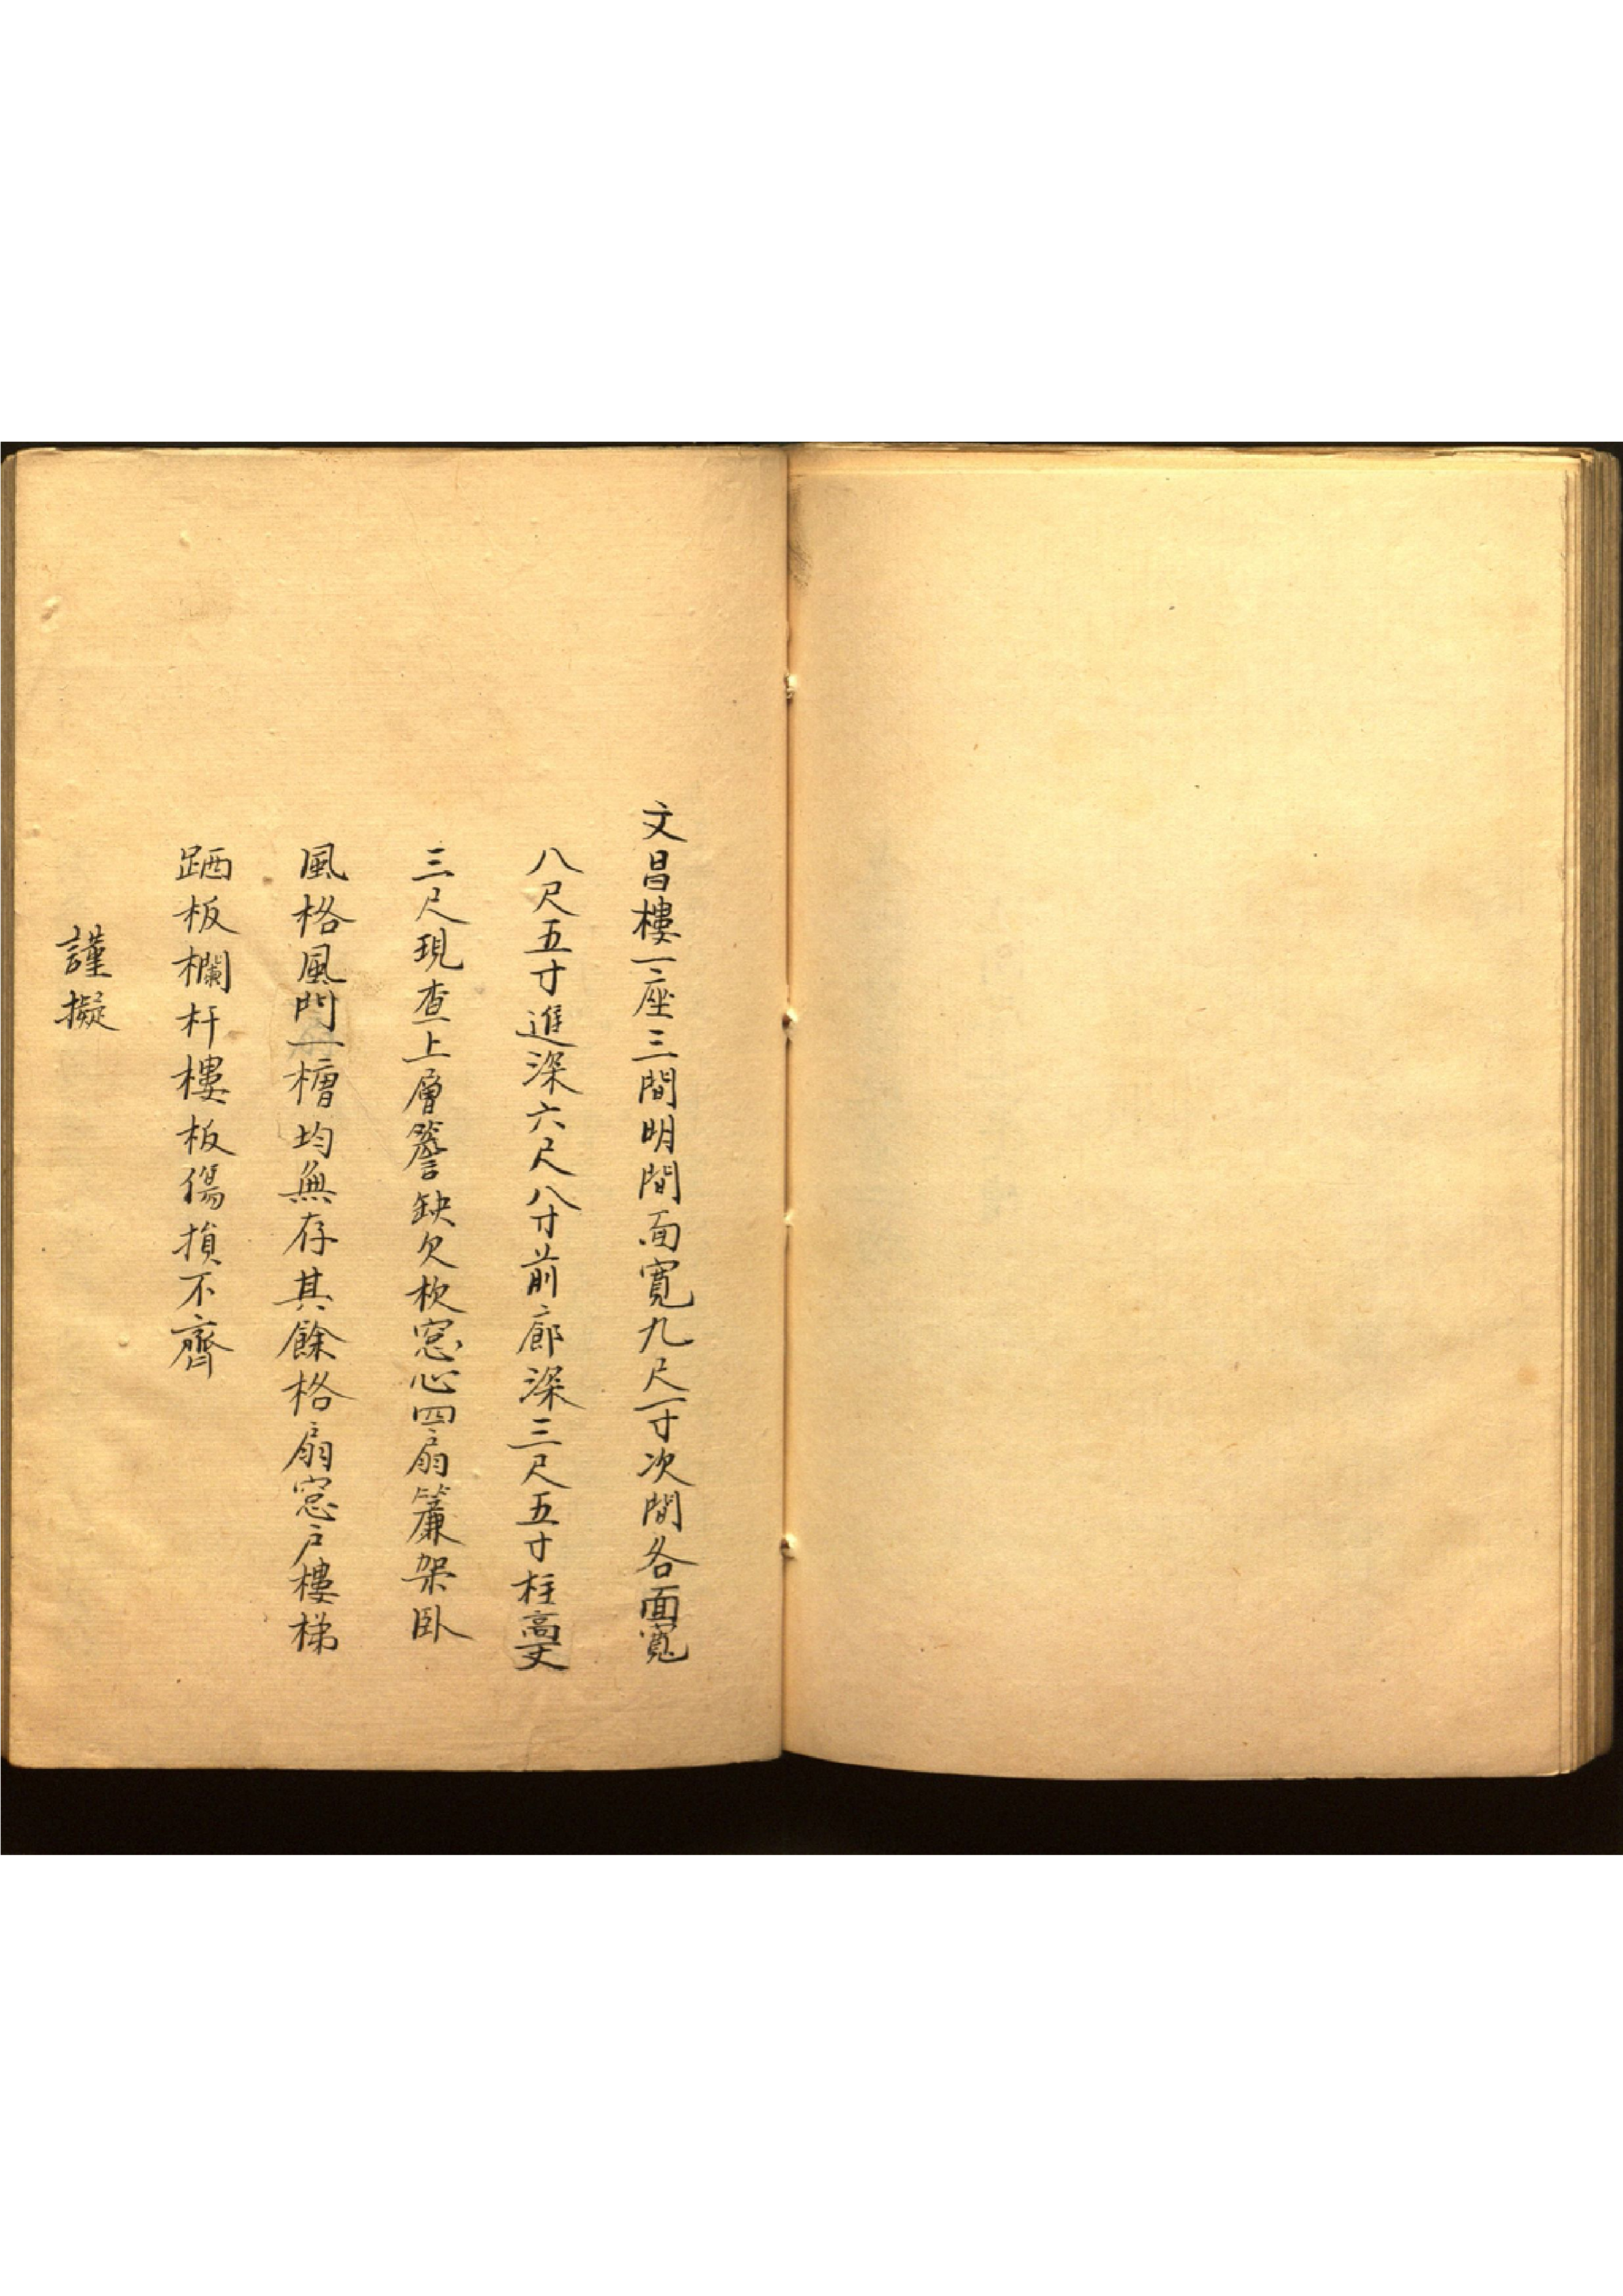 文昌樓一座三間明間面寬九尺一寸次間各面寬
八尺五寸進深六尺八寸前廊深三尺五寸柱高一丈
三尺現查上層簷缺欠栨窓心四扇簾架卧
風格風門一槽均無存其餘格扇窓户樓梯
跴板欄杆樓板傷損不齊
謹擬